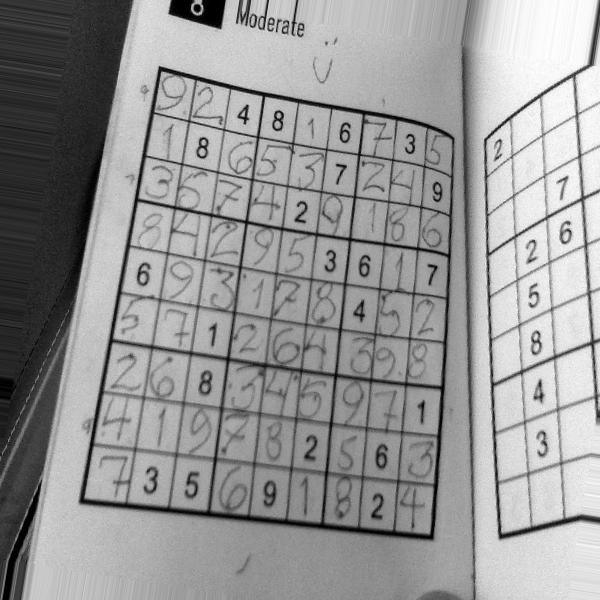 8 Moderate
9 2 4 8 1 6 7 3 5
1 8 6 5 3 7 2 4 9
3 5 7 4 2 9 1 8 6
8 4 2 9 5 3 6 1 7
6 9 3 1 7 8 4 5 2
5 7 1 2 6 4 3 9 8
2 6 8 3 4 5 9 7 1
4 1 9 7 8 2 5 6 3
7 3 5 6 9 1 8 2 4
2
7
2 6
5
8
4
3